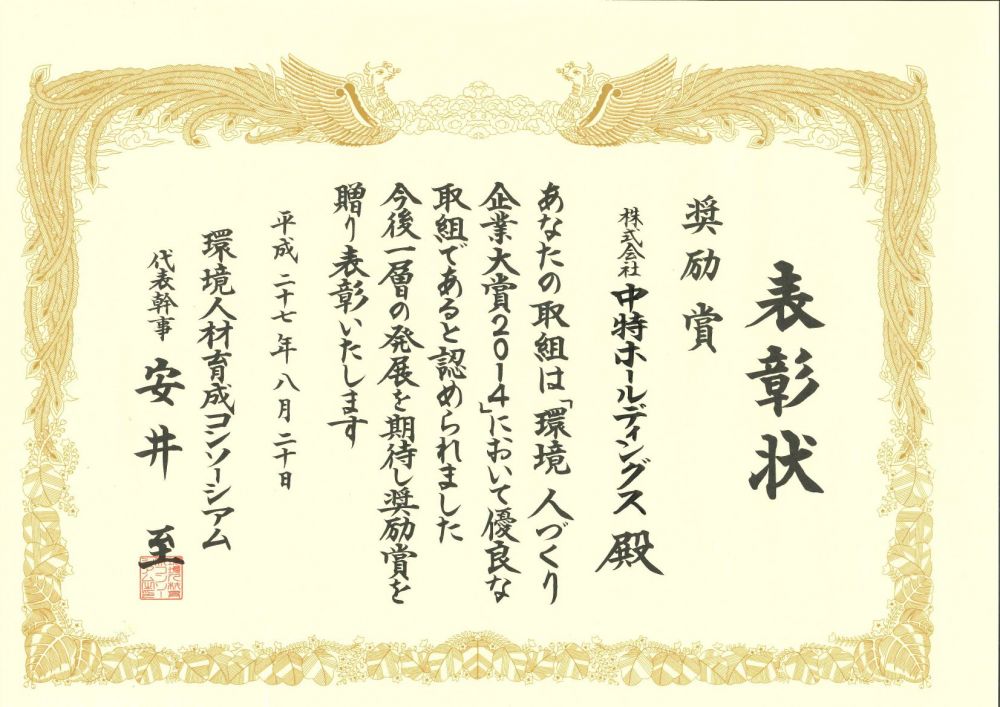 表彰状
奨励賞
株式会社 中特ホールディングス 殿
あなたの取組は「環境 人づくり
企業大賞2014」において優良な
取組であると認められました
今後一層の発展を期待し奨励賞を
贈り表彰いたします
平成二十七年八月二十日
環境人材育成コンソーシアム
代表幹事 安井 至